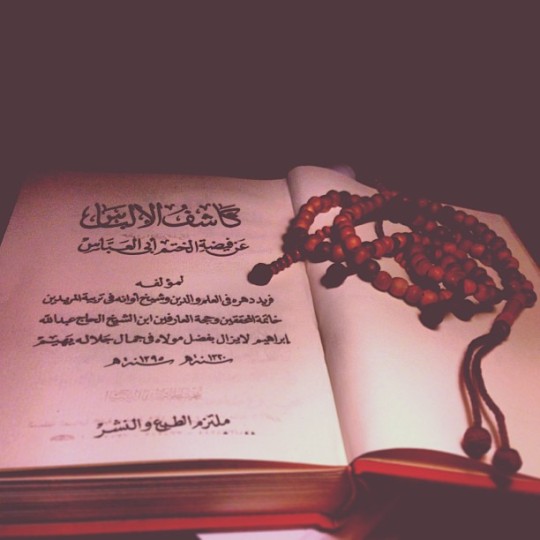 كاشف الإلباس
عن فيضة الختم أبي العباس
لمؤلفه
فريد دهره في العلم والدين وشيخ أوانه في تربية المريدين
خاتمة المحققين وحجة العارفين ابن الشيخ الحاج عبد الله
إبراهيم لا يزال بفضل مولاه في جمال جلاله يهيم
١٣٢٠ سنة هـ ١٣٩٥ سنة هـ
ملتزم الطبع والنشر